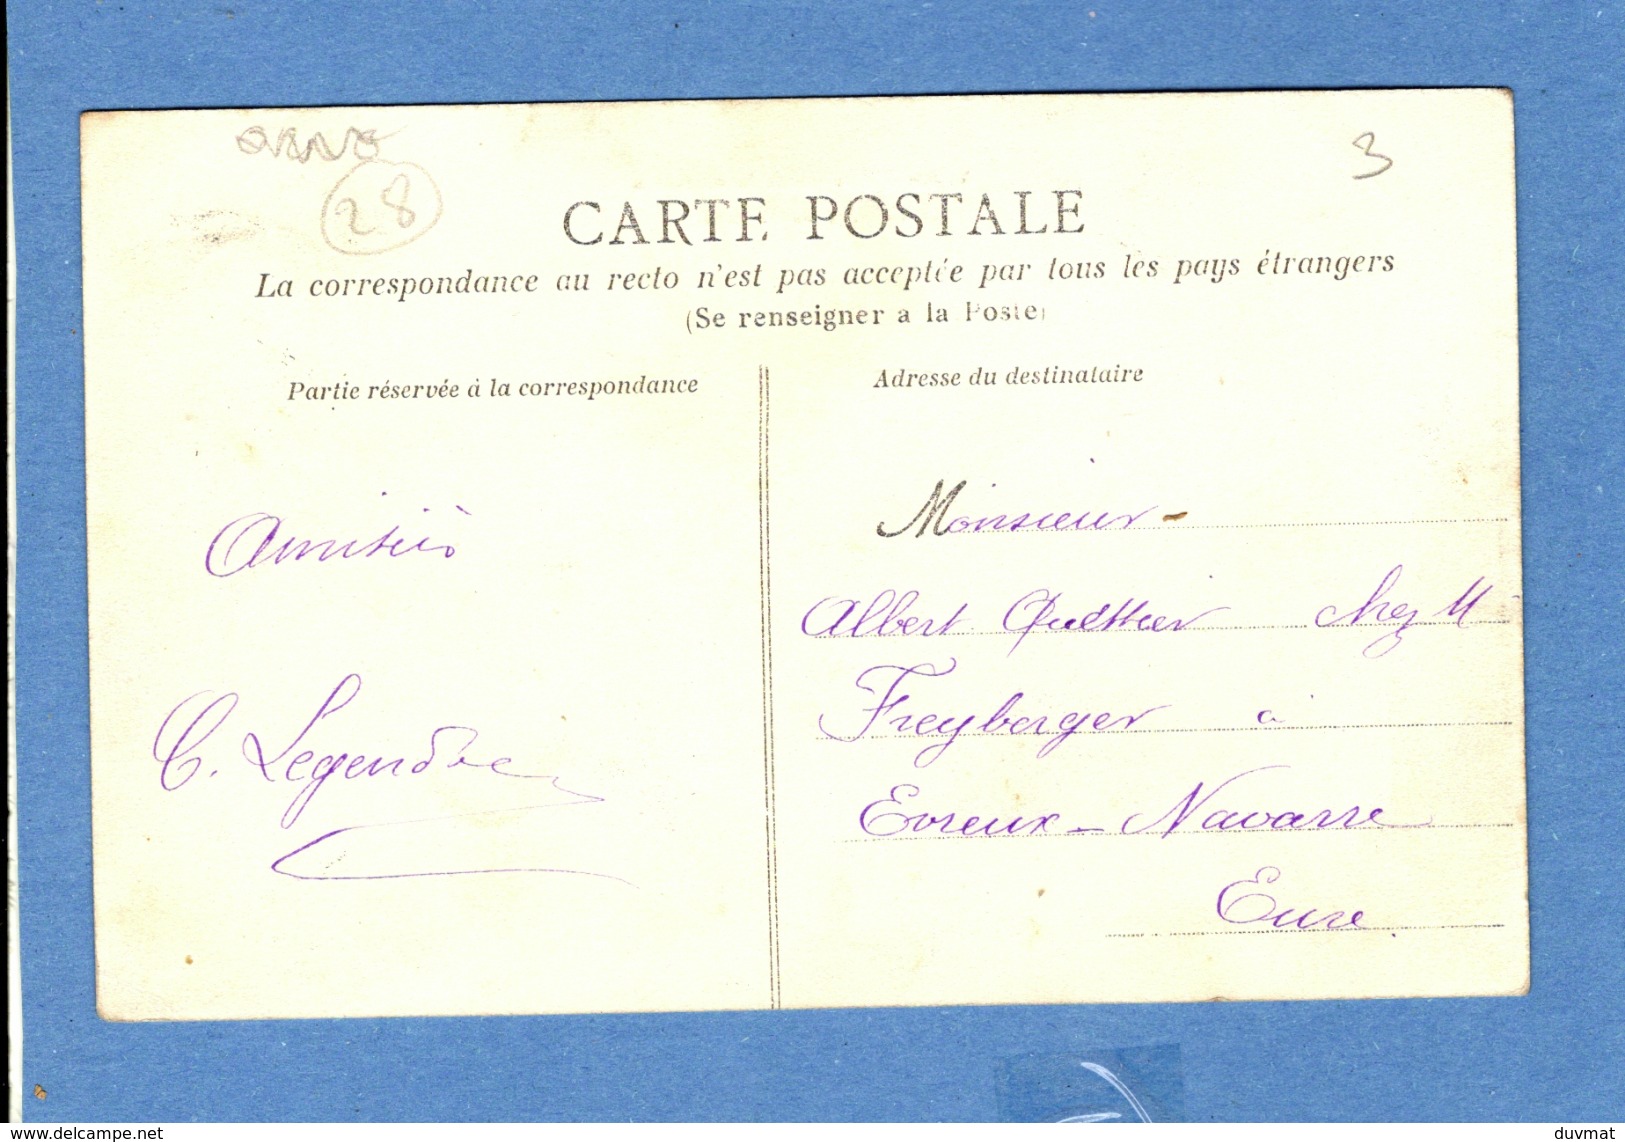 28
3
CARTE POSTALE
La correspondance au recto n'est pas acceptée par tous les pays étrangers
(Se renseigner a la Poste)
Partie réservée à la correspondance
Adresse du destinataire
Amitiés
C. Legendre
Monsieur -
Albert Quettier chez M
Freyberger à
Evreux - Navarre
Eure
www.delcampe.net
duvmat